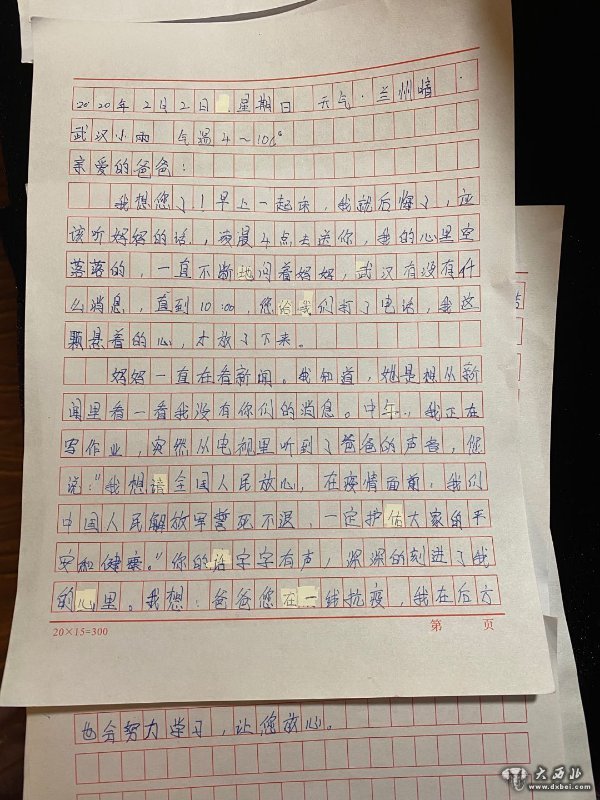 2020年2月2日 星期日 天气:兰州晴
武汉小雨 气温4~10℃
亲爱的爸爸:
我想您了!早上一起床,我就后悔了,应
该听妈妈的话,凌晨4点去送你,我的心里空
落落的,一直不断地问着妈妈,武汉有没有什
么消息,直到10:00,您给我们打了电话,我这
颗悬着的心,才放了下来。
妈妈一直在看新闻。我知道,她是想从新
闻里看一看我没有你们的消息。中午,我正在
写作业,突然从电视里听到了爸爸的声音,您
说:"我想请全国人民放心,在疫情面前,我们
中国人民解放军誓死不退,一定护佑大家的平
安和健康。"你的话字字有声,深深的刻进了我
的心里。我想:爸爸您在一线抗疫,我在后方
20×15=300
第 页
也会努力学习,让您放心。
大西北
www.dxbei.com